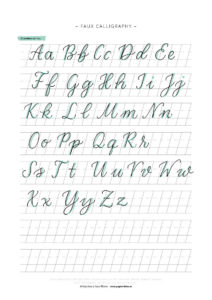 – FAUX CALLIGRAPHY –
Aa Bb Cc Dd Ee
Ff Gg Hh Ii Jj
Kk Ll Mm Nn
Oo Pp Qq Rr
Ss Tt Uu Vv Ww
Xx Yy Zz